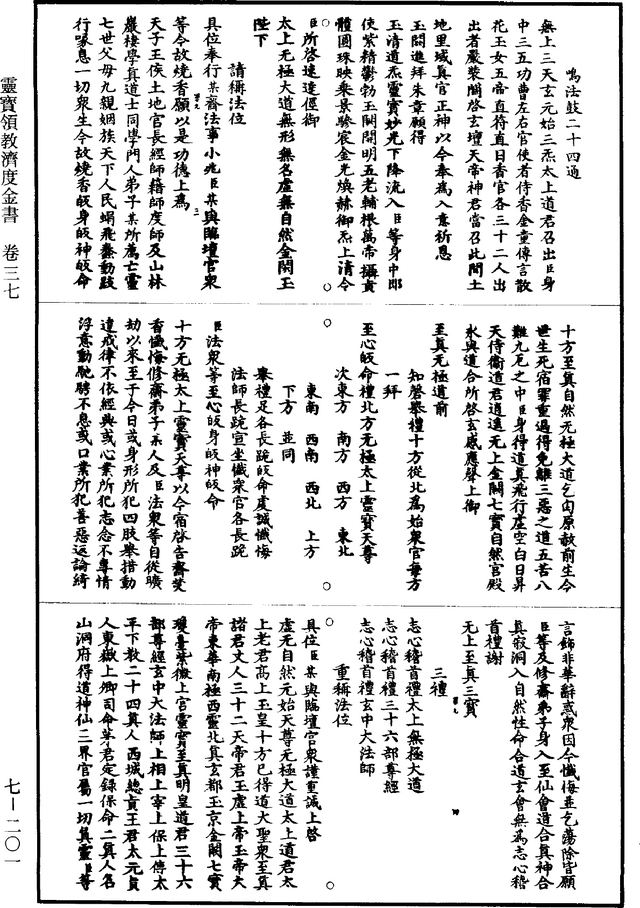 靈寶領教濟度金書　卷三七
鳴法鼓二十四通
無上三天玄元始三炁太上道君召出臣身
中三五功曹左右官使者侍香金童傳言散
花玉女五帝直符直日香官各三十二人出
出者嚴裝關啓玄壇天帝神君當召此間土
地里域真官正神以今奉為入意祈恩
玉闕進拜朱章願得
玉清道炁靈寶妙光下降流入臣等身中即
使紫精鬱勃玉闕開明五老輔根萬帝攝真
體圓珠映衆景驂宸金光煥赫御炁上清令
臣所啓速達徑御
太上無極大道無形無名虛無自然金闕玉
陛下
請稱法位
具位奉行某齋法事小兆臣某與臨壇官衆
等今故燒香願以是功德上為
天子王侯土地官長經師籍師度師及山林
巖棲學真道士同學門人弟子某所薦亡靈
七世父母九親姻族天下人民蜎飛蠢動跂
行喙息一切衆生今故燒香皈身皈神皈命
十方至真自然無極大道乞丐原赦前生今
世生死宿罪重過得免離三惡之道五苦八
難九厄之中臣身得道真飛行虛空白日昇
天侍衛道君逍遙無上金闕七寶自然宮殿
永與道合所啓玄感應聲上御
至真無極道前
知磬舉禮十方從北為始衆官每方
一拜
至心皈命禮北方無極太上靈寶天尊
次東方　南方　西方　東北
東南　西南　西北　上方
下方　並同
舉禮足各長跪皈命虔誠懺悔
法師長跪宣坐懺衆官各長跪
臣法衆等至心皈身皈神皈命
十方無極太上靈寶天尊以今宿啓告齋焚
香懺悔修齋弟子某人及臣法衆等自從曠
劫以來至于今日或身形所犯四肢舉措動
違戒律不依經典或心業所犯志念不專情
浮意動馳騁不息或口業所犯善惡返論綺
言飾非華辭惑衆因今懺悔並乞蕩除皆願
臣等及修齋弟子身入至仙會道合真神合
真寂洞入自然性命合道玄會無為志心稽
首禮謝
无上至真三寶
三禮
志心稽首禮太上無極大道
志心稽首禮三十六部尊經
志心稽首禮玄中大法師
重稱法位
具位臣某與臨壇官衆謹重誠上啓
虛无自然元始天尊无極大道太上道君太
上老君高上玉皇十方已得道大聖衆至真
諸君丈人三十二天帝君玉虛上帝玉帝大
帝東華南極西靈北真玄都玉京金闕七寶
瓊臺紫微上宮靈寶至真明皇道君三十六
部尊經玄中大法師上相上宰上保上傅太
平下教二十四真人西城總真王君太元真
人東嶽上卿司命茅君定錄保命二真人名
山洞府得道神仙三界官屬一切真靈臣等
七—二〇一